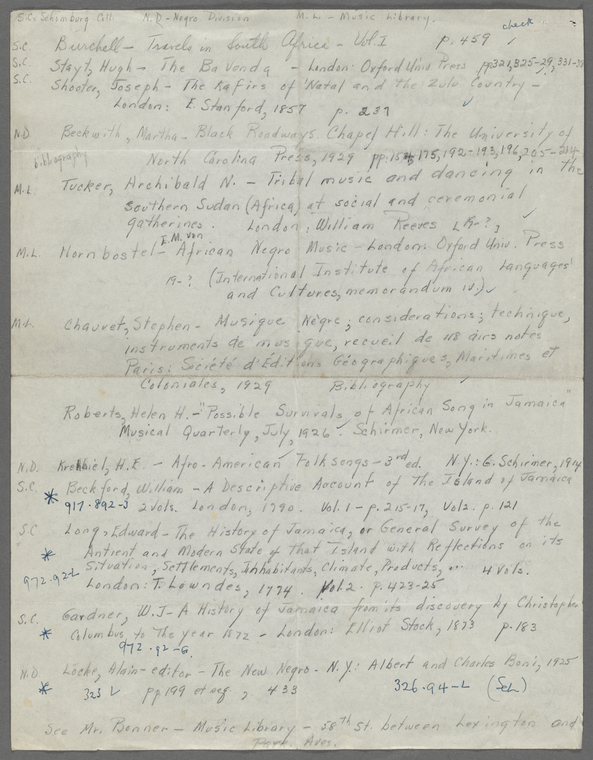 S.C. Schomburg Coll. N.D - Negro Division M.L. - Music Library.
check
S.C Burchell - Travels in South Africa - Vol. I p. 459 ✓
S.C Stayt, Hugh - The Bavenda - London: Oxford Univ Press pp 321, 325-29, 331-
S.C. Shooter, Joseph - The Kafirs of Natal and the Zulu Country -
London: E. Stanford, 1857 p. 237 ✓
N.D Beckwith, Martha - Black Roadways. Chapel Hill: The University of
bibliography North Carolina Press, 1929 pp. 175, 192-193, 196, 205-214
M.L. Tucker, Archibald N. - Tribal music and dancing in the
Southern Sudan (Africa) at social and ceremonial
gatherings. London: William Reeves [19-?] ✓
E.M. von
M.L. Hornbostel - African Negro Music - London: Oxford Univ. Press
19-? (International Institute of African Languages
and Cultures, memorandum IV.) ✓
M.L. Chauvet, Stephen - Musique Nègre; considerations; technique,
instruments de musique, recueil de 118 airs notes
Paris: Société d'Editions Géographiques, Maritimes et
Coloniales, 1929 Bibliography ✓
Roberts, Helen H. - "Possible Survivals of African Song in Jamaica"
Musical Quarterly, July, 1926 ✓ Schirmer, New York.
N.D. Krehbiel, H.E. - Afro-American Folksongs - 3rd ed. N.Y.: G. Schirmer, 1914
S.C. * Beckford, William - A Descriptive Account of the Island of Jamaica
917.892-3 2 vols. London, 1790. Vol. 1 - p. 215-17, Vol 2. p. 121
S.C Long, Edward - The History of Jamaica, or General Survey of the
* Antient and Modern State of that Island with Reflections on its
972.92-L Situation, Settlements, Inhabitants, Climate, Products, ... 4 vols.
London: T. Lowndes, 1774. Vol. 2. p. 423-25
S.C. Gardner, W.J - A History of Jamaica from its discovery by Christopher
* Columbus to the year 1872 - London: Elliot Stock, 1873 p. 183
972.92-G.
N.D Locke, Alain - editor - The New Negro - N.Y.: Albert and Charles Boni, 1925
* 323 L pp 199 et seq, 433 326.94-L (Sch)
See Mr. Bonner - Music Library - 58th St. between Lexington and
Park Aves.